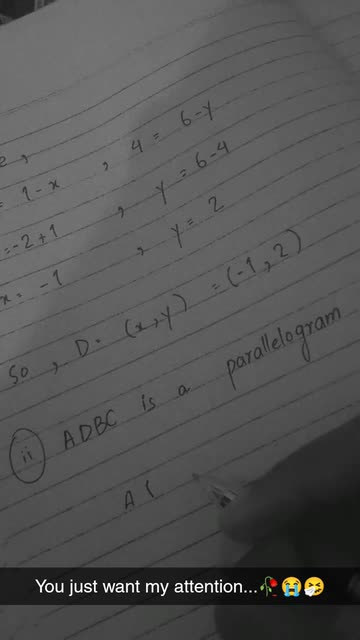 = 1-x , 4 = 6-y
= -2+1 , y = 6-4
x = -1 , y = 2
So , D = (x,y) = (-1,2)
ii ADBC is a parallelogram
A (
You just want my attention...🥀😭🤧